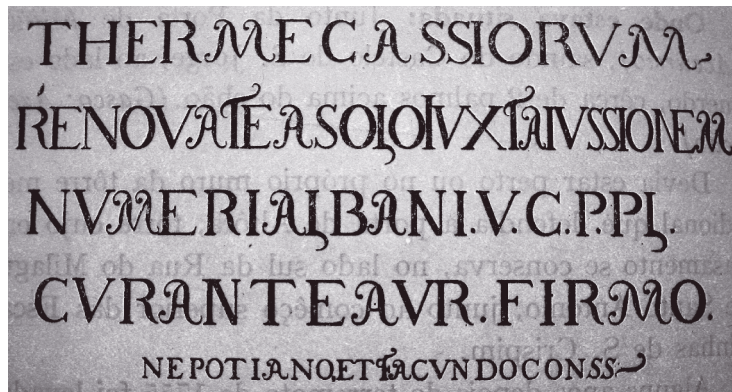 THERMECASSIORVM
RENOVATEASOLOIVXTAIVSSIONEM
NVMERIALBANI.V.C.P.PL.
CVRANTEAVR.FIRMO.
NEPOTIANO,ETFACVNDOCONSS